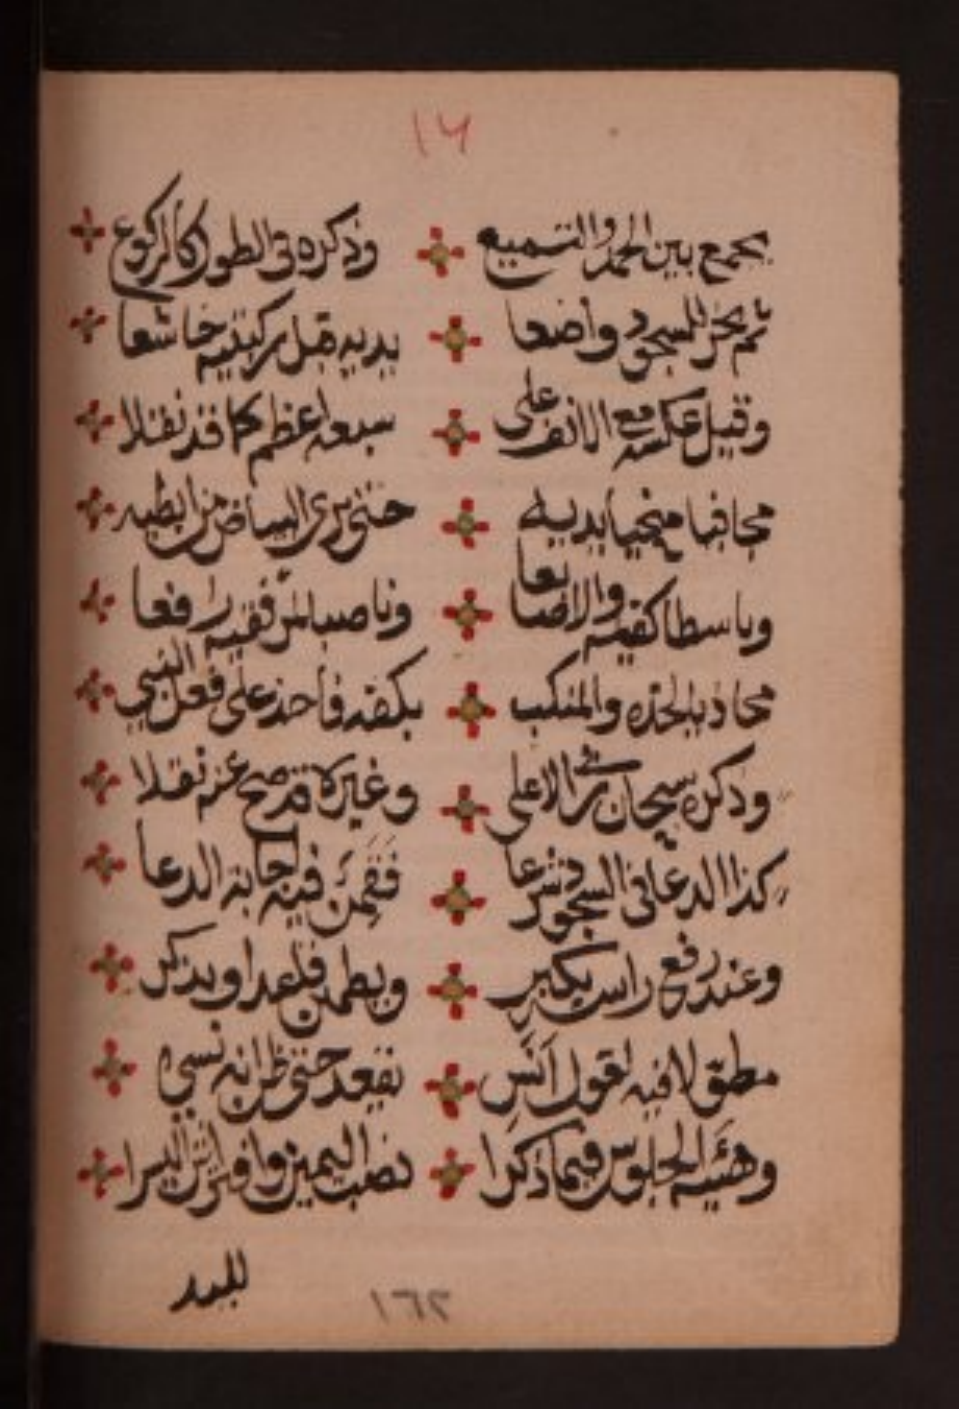 ١٦
يجمع بين الحمد والتسميع وذكره في الطول كالركوع
ثم يخر للسجود واضعا يديه قبل ركبتيه خاشعا
وقيل عكسه مع الانف على سبعه اعظم كما قد نقلا
مجافيا منحيا يديه حتى يرى البياض من ابطيه
وباسطا كفيه والاصابعا وناصبا مرفقيه رافعا
محاذيا لخده والمنكب بكفه فاحذ على فعل النبي
وذكره سبحان ربي الاعلى وغيره قد صح عنهم نقلا
كذا الدعا في السجود شرعا فَقَمِن فيه اجابه الدعا
وعند رفع راسه يكبر ويطمئن قاعدا ويذكر
مطولا فيه لقول اَنَسِ نقعد حتى ظن انه نسي
وهيئه الجلوس فيما ذكرا نصب اليمين وافتراش اليسرا
لليد